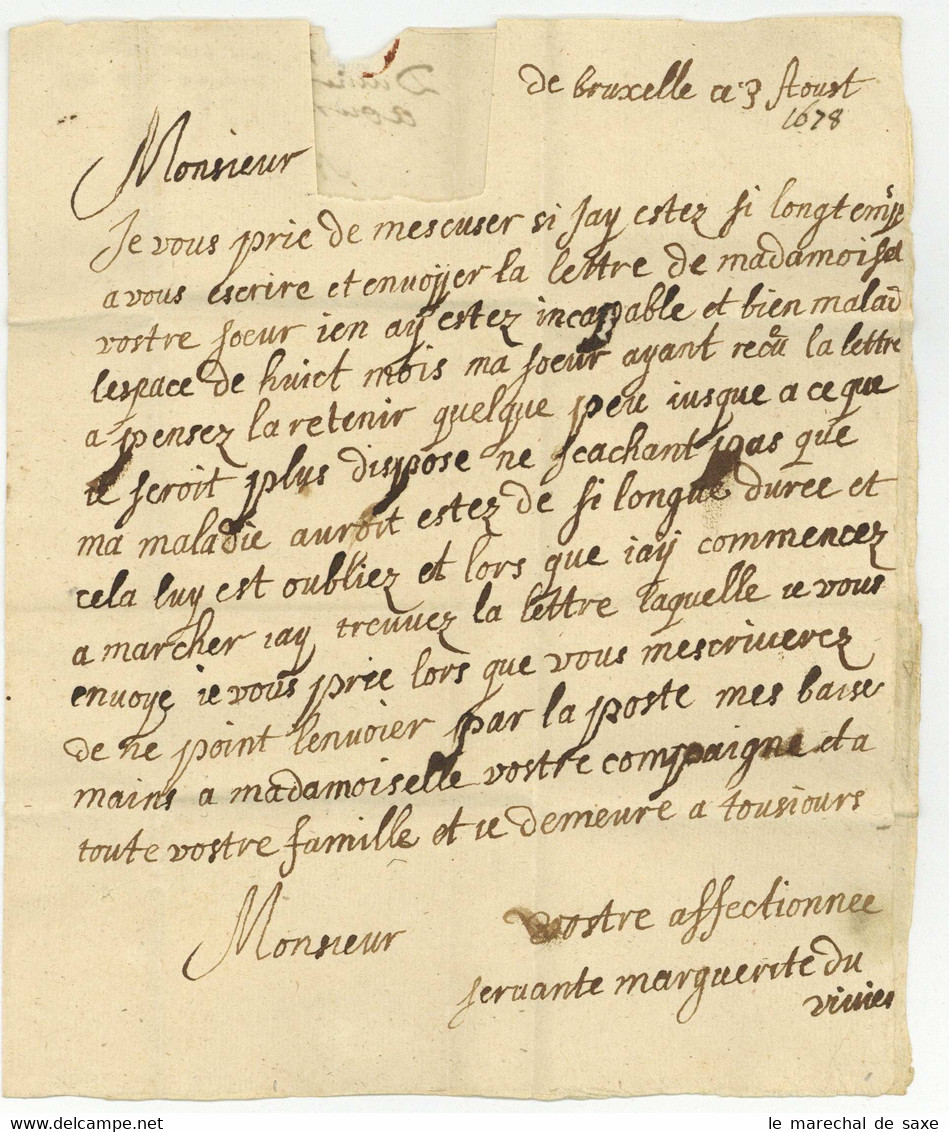 de bruxelle ce 3 Aoust
1678
Monsieur
Je vous prie de mescuser si Jay estez si longtemps
a vous escrire et envoyer la lettre de madamoisel
vostre soeur ien ay estez incapable et bien malad
lespace de huict mois ma soeur ayant recu la lettre
a pensez la retenir quelque peu iusque a ce que
ie seroit plus dispose ne scachant pas que
ma maladie auroit estez de si longue duree et
cela luy est oubliez et lors que iay commencez
a marcher iay treuvez la lettre laquelle ie vous
envoye ie vous prie lors que vous mescriverez
de ne point lenvoier par la poste mes baise
mains a madamoiselle vostre compaigne et a
toute vostre famille et ie demeure a tousiours
Monsieur
vostre affectionnee
servante marguerite du
vivier
le marechal de saxe
www.delcampe.net